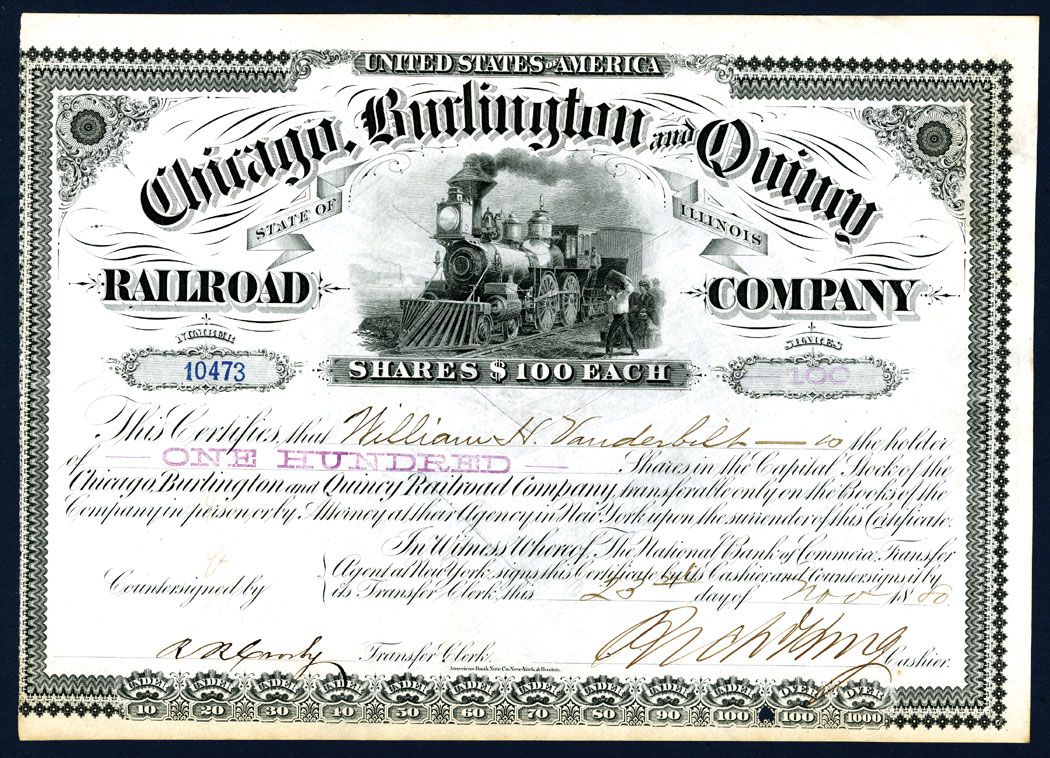 UNITED STATES OF AMERICA
Chicago, Burlington and Quincy
STATE OF ILLINOIS
RAILROAD COMPANY
NUMBER SHARES
10473 100
SHARES $100 EACH
This Certifies, that William H. Vanderbilt — is the holder
of — ONE HUNDRED — Shares in the Capital Stock of the
Chicago, Burlington and Quincy Railroad Company, transferable only on the Books of the
Company in person or by Attorney at their Agency in New York upon the surrender of this Certificate.
In Witness Whereof, The National Bank of Commerce, Transfer
Agent at New York, signs this Certificate by its Cashier and Countersigns it by
its Transfer Clerk, this 23 day of Nov 1880.
Countersigned by
R R Crosby Transfer Clerk. Cashier.
American Bank Note Co. New-York & Boston.
UNDER 10 UNDER 20 UNDER 30 UNDER 40 UNDER 50 UNDER 60 UNDER 70 UNDER 80 UNDER 90 UNDER 100 OVER 100 OVER 1000